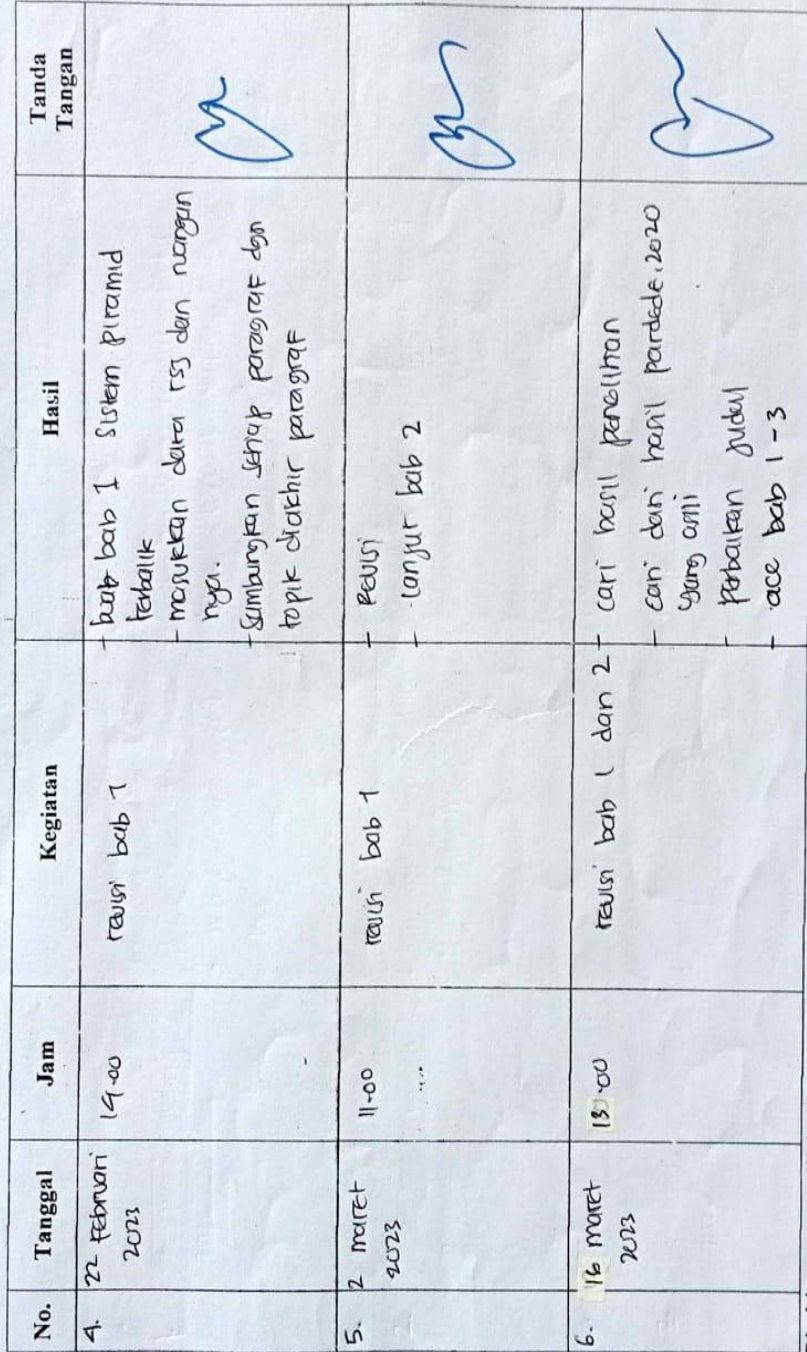 No. Tanggal Jam Kegiatan Hasil Tanda
Tangan
4. 22 Februari 14.00 revisi bab 1 - buat bab 1 sistem piramid
2023 terbalik
- masukkan data rsj dan ruangan
nya.
- Sambungkan setiap paragraf dgn
topik diakhir paragraf
5. 2 maret 11.00 revisi bab 1 - Revisi
2023 - Lanjut bab 2
6. 16 maret 13.00 revisi bab 1 dan 2 - cari hasil penelitian
2023 - cari dari hasil pardede, 2020
yang asli
- Perbaikan judul
- acc bab 1-3